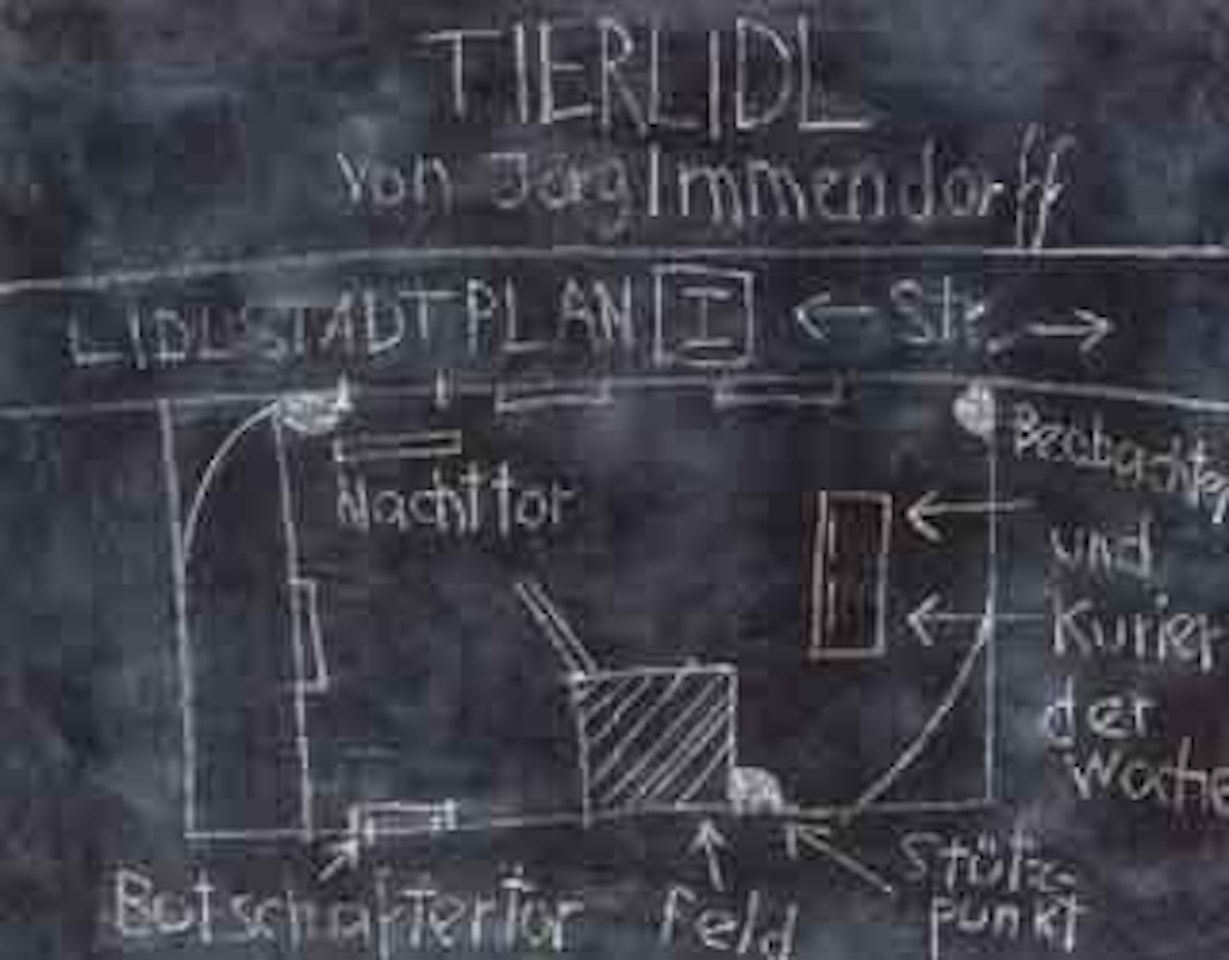 TIERLIDL
von Jörg Immendorff
LIDLSTADTPLAN I ← Str. →
Beobachter
Nachttor
und
Kurier
der
Woche
Stütz-
punkt
Botschaftertor
Feld